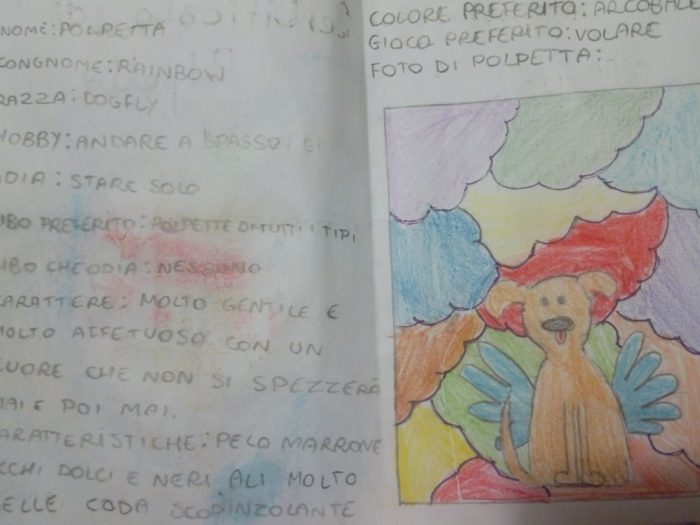 NOME: POLPETTA
CONGNOME: RAINBOW
RAZZA: DOGFLY
HOBBY: ANDARE A SPASSO
ODIA: STARE SOLO
IBO PREFERITO: POLPETTE DI TUTTI I TIPI
IBO CHE ODIA: NESSUNO
CARATTERE: MOLTO GENTILE E
MOLTO AFFETUOSO CON UN
CUORE CHE NON SI SPEZZERÀ
MAI E POI MAI,
CARATTERISTICHE: PELO MARRONE
OCCHI DOLCI E NERI ALI MOLTO
BELLE CODA SCODINZOLANTE
COLORE PREFERITO: ARCOBALE
GIOCO PREFERITO: VOLARE
FOTO DI POLPETTA: